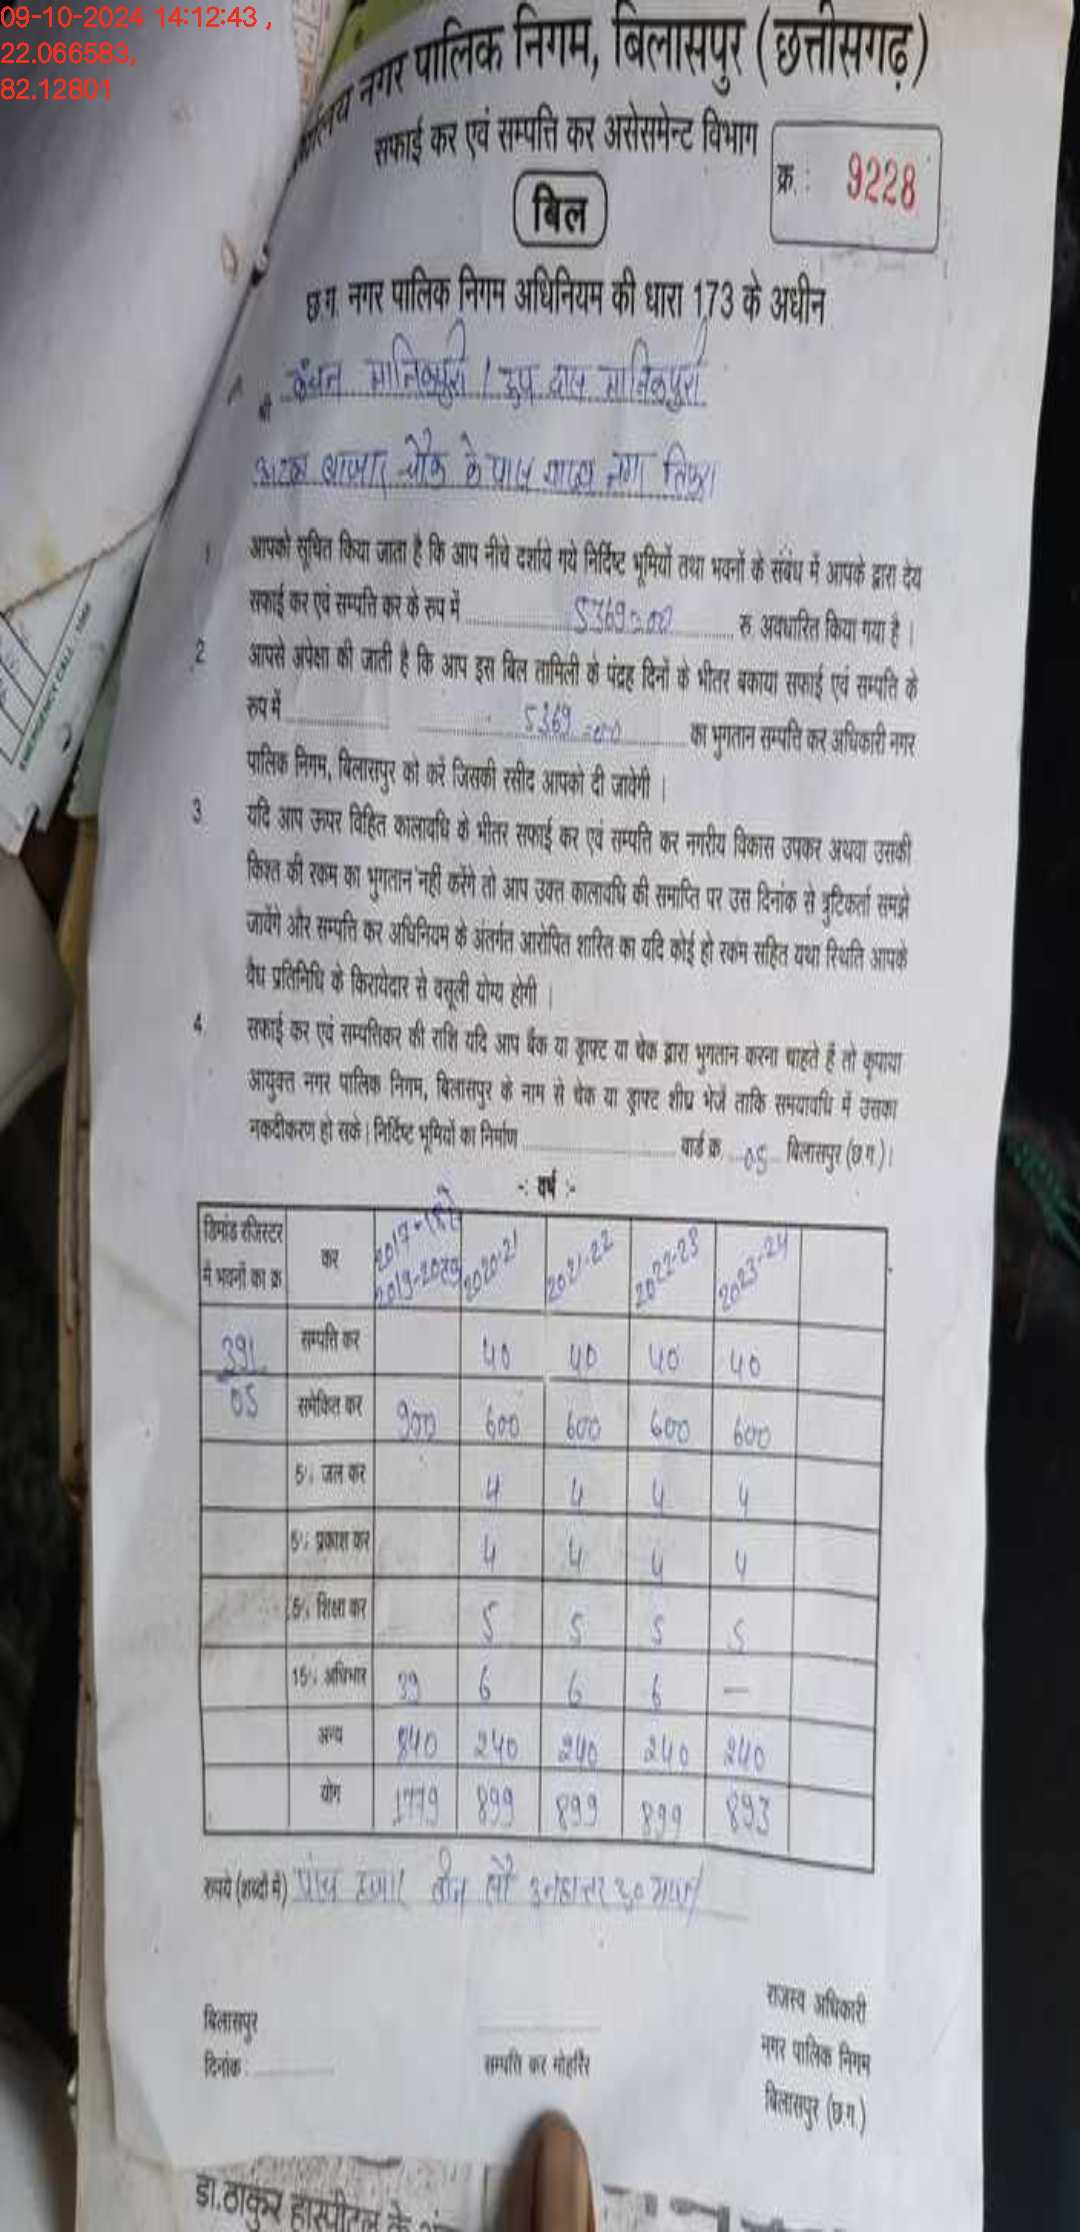 09-10-2024 14:12:43 ,
22.066583,
82.12801
नगर पालिक निगम, बिलासपुर (छत्तीसगढ़)
सफाई कर एवं सम्पत्ति कर असेसमेन्ट विभाग
क्र. : 9228
बिल
छ.ग. नगर पालिक निगम अधिनियम की धारा 173 के अधीन
श्री मानिकपुरी / दास मानिकपुरी
बाजार चौक के पास
1 आपको सूचित किया जाता है कि आप नीचे दर्शाये गये निर्दिष्ट भूमियों तथा भवनों के संबंध में आपके द्वारा देय
सफाई कर एवं सम्पत्ति कर के रूप में 5369=00 रु अवधारित किया गया है ।
2 आपसे अपेक्षा की जाती है कि आप इस बिल तामिली के पंद्रह दिनों के भीतर बकाया सफाई एवं सम्पति के
रूप में 5369=00 का भुगतान सम्पत्ति कर अधिकारी नगर
पालिक निगम, बिलासपुर को करें जिसकी रसीद आपको दी जावेगी ।
3 यदि आप ऊपर विहित कालावधि के भीतर सफाई कर एवं सम्पत्ति कर नगरीय विकास उपकर अथवा उसकी
किश्त की रकम का भुगतान नहीं करेंगे तो आप उक्त कालावधि की समाप्ति पर उस दिनांक से त्रुटिकर्ता समझे
जावेंगे और सम्पत्ति कर अधिनियम के अंतर्गत आरोपित शास्ति का यदि कोई हो रकम सहित यथा स्थिति आपके
वैध प्रतिनिधि के किरायेदार से वसूली योग्य होगी ।
4. सफाई कर एवं सम्पत्तिकर की राशि यदि आप बैंक या ड्राफ्ट या चेक द्वारा भुगतान करना चाहते है तो कृपया
आयुक्त नगर पालिक निगम, बिलासपुर के नाम से चेक या ड्राफ्ट शीघ्र भेजें ताकि समयावधि में उसका
नकदीकरण हो सके। निर्दिष्ट भूमियों का निर्माण वार्ड क्र. 05 बिलासपुर (छ.ग.)।
-: वर्ष :-
डिमांड रजिस्टर में भवनों का क्र कर 2017-18 से 2019-2020 2020-21 2021-22 2022-23 2023-24
391 सम्पत्ति कर 40 40 40 40
05 समेकित कर 900 600 600 600 600
5% जल कर 4 4 4 4
5% प्रकाश कर 4 4 4 4
5% शिक्षा कर 5 5 5 5
15% अधिभार 39 6 6 6 —
अन्य 840 240 240 240 240
योग 1779 899 899 899 893
रूपये (शब्दों में) पांच हजार तीन सौ उनहत्तर रु० मात्र
राजस्व अधिकारी
बिलासपुर नगर पालिक निगम
दिनांक सम्पत्ति कर मोहर्रिर
बिलासपुर (छ.ग.)
डा.ठाकुर हास्पीटल के